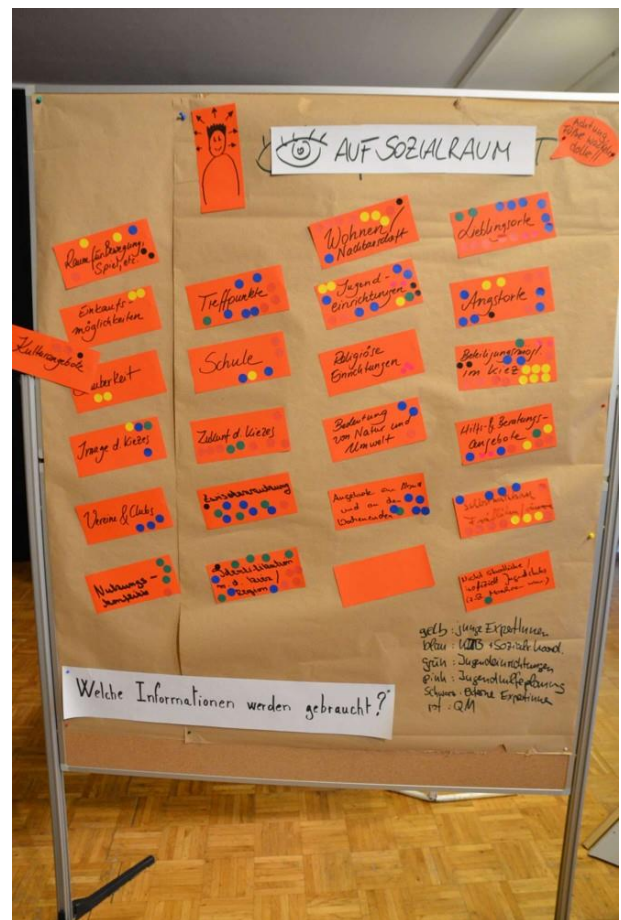 AUF SOZIALRAUM
Achtung
Raum für Bewegung,
Spiel, etc
Einkaufs-
möglichkeiten
Kulturangebote
Sauberkeit
Image d. Kiezes
Vereine & Clubs
Nutzungs-
Treffpunkte
Schule
Zukunft d. Kiezes
Identifikation
Region
Wohnen/
Nachbarschaft
Jugend-
einrichtungen
Religiöse
Einrichtungen
Bedeutung
von Natur und
Umwelt
Angebote am Abend
und an den
Wochenenden
Lieblingsorte
Angstorte
Beteiligungsmögl.
im Kiez
Hilfs- & Beratungs-
angebote
gelb: junge ExpertInnen
blau: + Sozialr. koord.
grün: Jugendeinrichtungen
pink: Jugendhilfeplanung
schwarz: Externe ExpertInnen
rot: QM
Welche Informationen werden gebraucht?